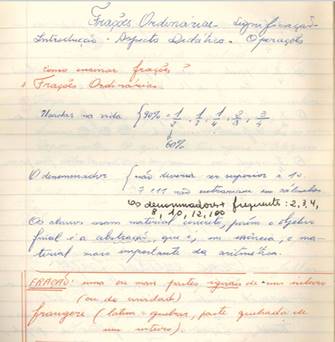 Frações Ordinarias - significação -
Introdução - Aspecto Didático - Operações
como ensinar frações?
Frações Ordinárias.
Usadas na vida { 90% = 1/2, 1/3, 1/4, 2/3, 3/4
60%
O denominador { não deveria ser superior a 10
não entrariam em cálculos
os denominadores + frequente: 2, 3, 4,
8, 10, 12, 100
Os alunos usam material concreto, porém o objetivo
final é a abstração, que é, em essência, o ma-
terial mais importante da aritmética.
FRAÇÃO: uma ou mais partes iguais de um inteiro
(ou da unidade)
frangere (latim = quebrar, parte quebrada de
um inteiro).